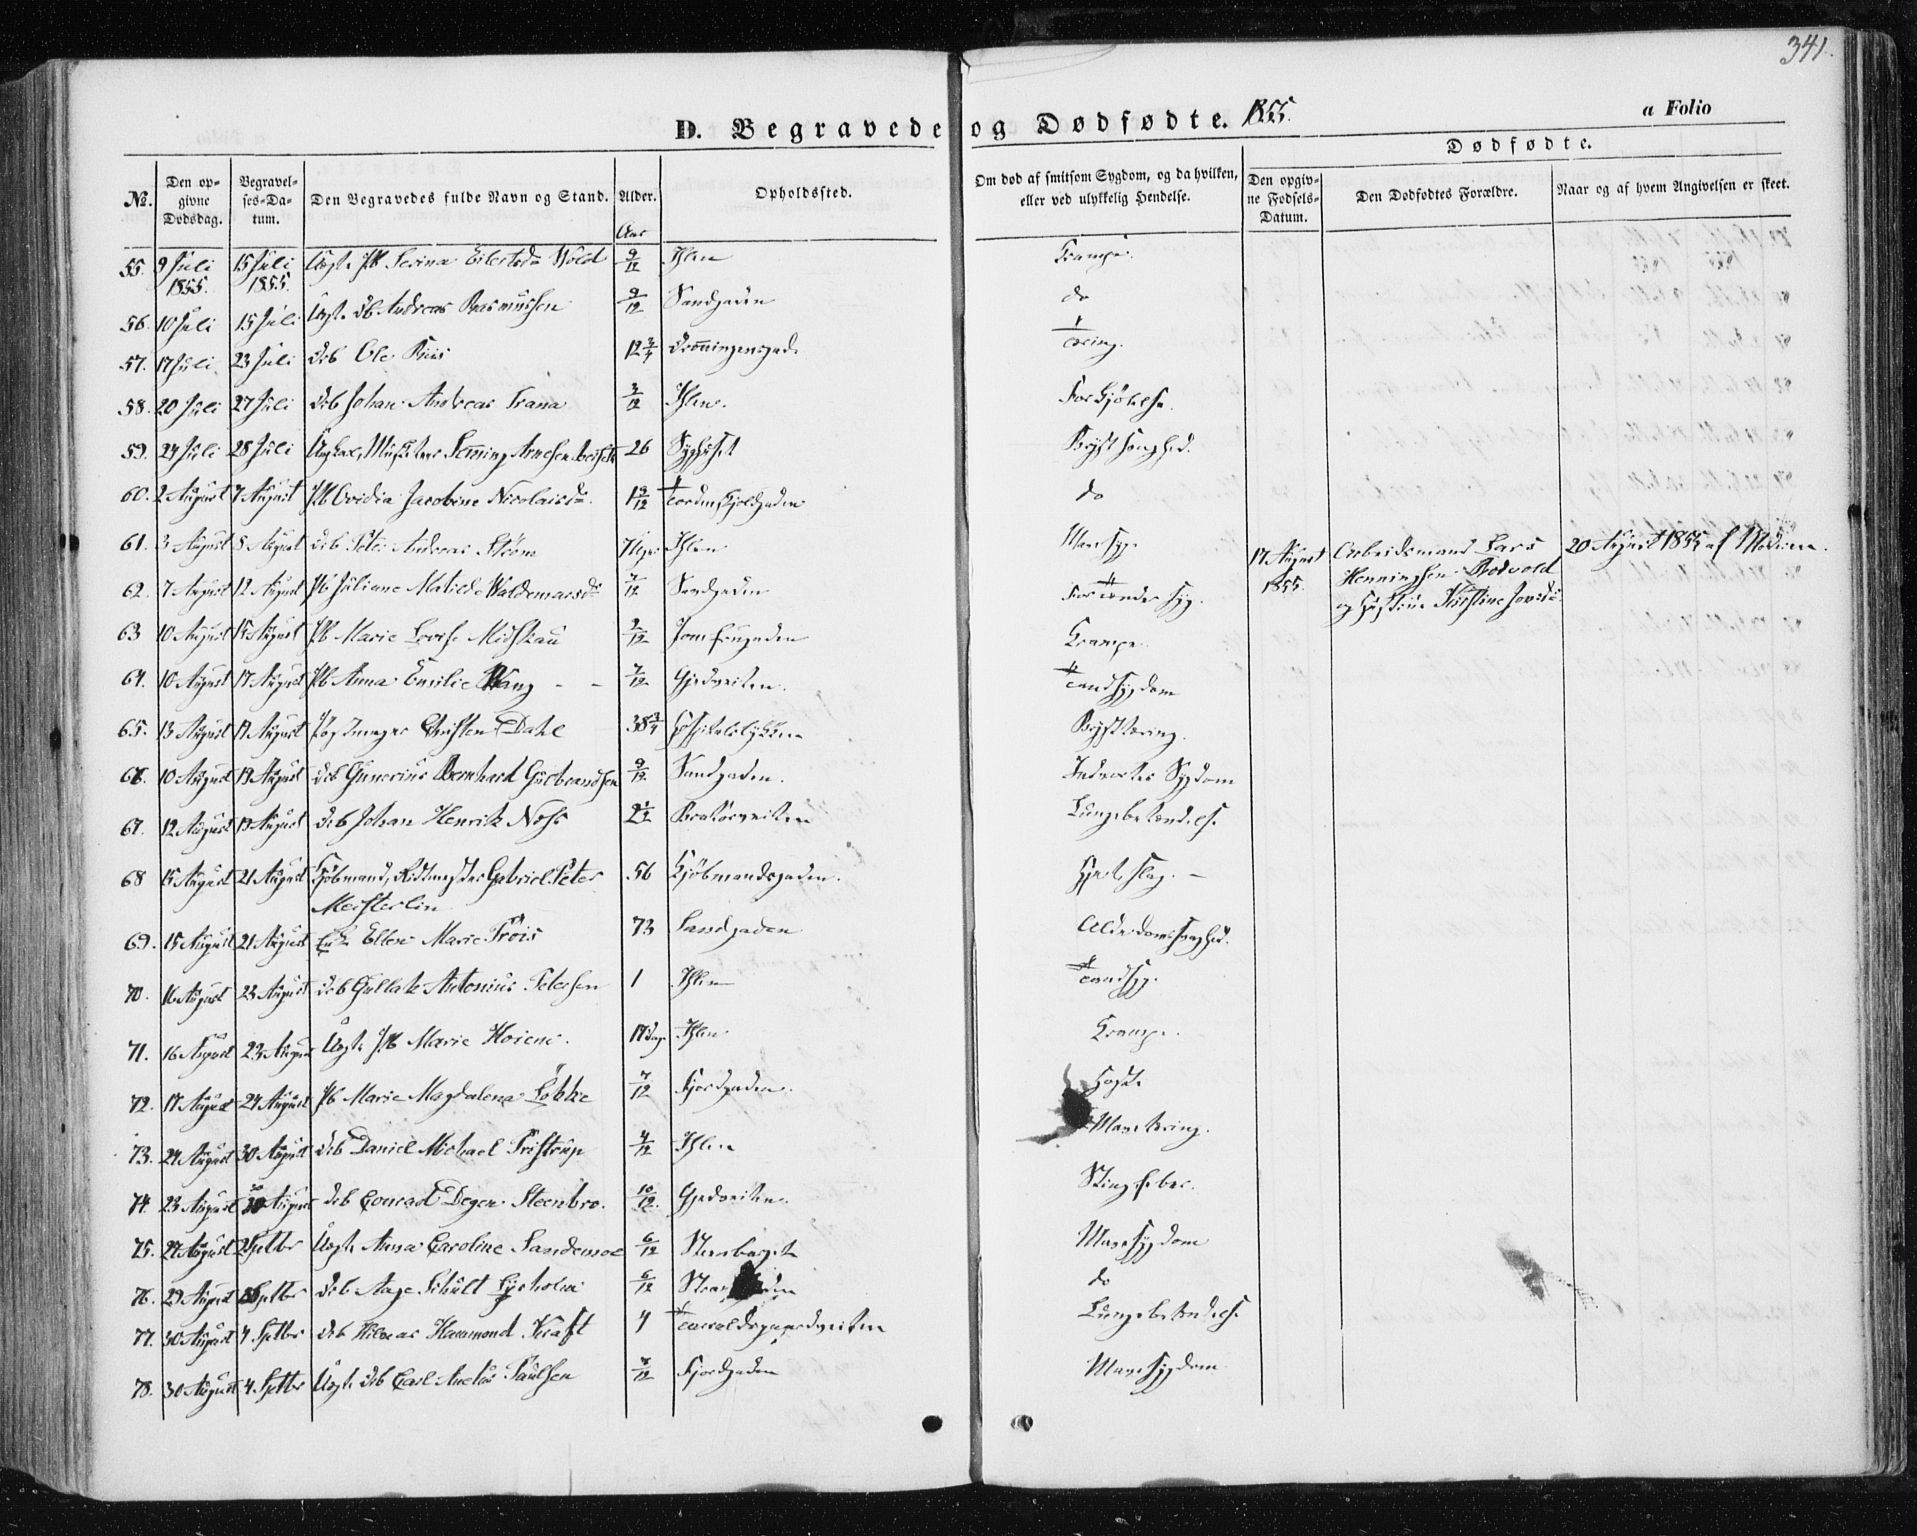 341.
D. Begravede og Dødfødte. 1855.
a Folio
Dødfødte.
No. Den opgivne Dødsdag. Begravelses-Datum. Den Begravedes fulde Navn og Stand. Alder. Opholdssted. Om død af smitsom Sygdom, og da hvilken, eller ved ulykkelig Hendelse. Den opgivne Fødsels-Datum. Den Dødfødtes Forældre. Naar og af hvem Angivelsen er skeet.
Aar
55. 9 Juli 1855. 15 Juli 1855. Uægte Pb Serina Eilertsdr Wold 9/12 Ihlen Krampe.
56. 10 Juli 15 Juli Uægte Db Andreas Rasmussen 9/12 Sandgaden do
57. 17 Juli 23 Juli Db Ole Riis 12 3/4 Dronningensgade Tæring.
58. 20 Juli 27 Juli Db Johan Andreas Trana 3/12 Ihlen. Forkjølelse.
59. 24 Juli 28 Juli Ungkarl, Musketeer Henning Arnesen 26 Syghuset Brystsvaghed.
60. 2 August 7 August Pb Ovidia Jacobine Nicolaisdr. 1 9/12 Tordenskjoldsgaden do
61. 3 August 8 August Db Peter Andreas Strøm 7 Uger Ihlen Mavesyge
17 August 1855. Arbeidsmand Lars Henningsen Rødvold og Hustrue Kirstine Jonsdr. 20 August 1855 af Moderen.
62. 7 August 12 August Pb Juliane Matilde Waldemarsdr 7/12 Sandgaden
63 10 August 15 August Pb Marie Lovise Midskau 2/12 Jomfrugaden Krampe.
64. 10 August 17 August Pb Anna Emilie Wang - - 7/12 Gjedveiten. Tandsygdom
65. 13 August 17 August Christen Dahl 38 3/4 Hospitalsløkken Brysttæring.
66. 10 August 19 August Db Gunerius Bernhard Gulbrandsen 9/12 Sandgaden. Indvortes Sygdom
67. 12 August 19 August Db Johan Henrik Noss 2 1/2 Bratørveiten Lungebetændelse
68 15 August 21 August Kjøbmand, Ridtmester Gabriel Peter 56 Kjøbmandsgaden. Hjerteslag. -
Meisterlin
69. 15 August 21 August Enke Ellen Marie Prøis 73 Sandgaden Alderdomssvaghed.
70. 16 August 23 August Db Gullak Antonius Petersen 1 Ihlen Tandsyge.
71. 16 August 23 August Uægte Pb Marie Hoiem. 17 Dage Ihlen Krampe.
72. 17 August 24 August Pb Marie Magdalena Løkke 7/12 Fjordgaden. Hoste
73. 24 August 30 August Db Daniel Michael Tristrup 4/12 Ihlen Mavetæring.
74. 23 August 30 August Db Conrad Degen Steenbro. 10/12 Gjedveiten. Stingfeber.
75. 27 August 2 Septbr Uægte Anna Caroline Sandemoe 6/12 Steenberget Mavesygdom
76. 29 August Septbr Db Aage Schult Lysholm 6/12 do
77. 30 August 4 Septbr Db Hilmar Hammond Kraft 4 Lungebetændelse
78. 30 August 4 Septbr Uægte Db Carl Anetus Paulsen 7/12 Fjordgaden Mavesygdom.